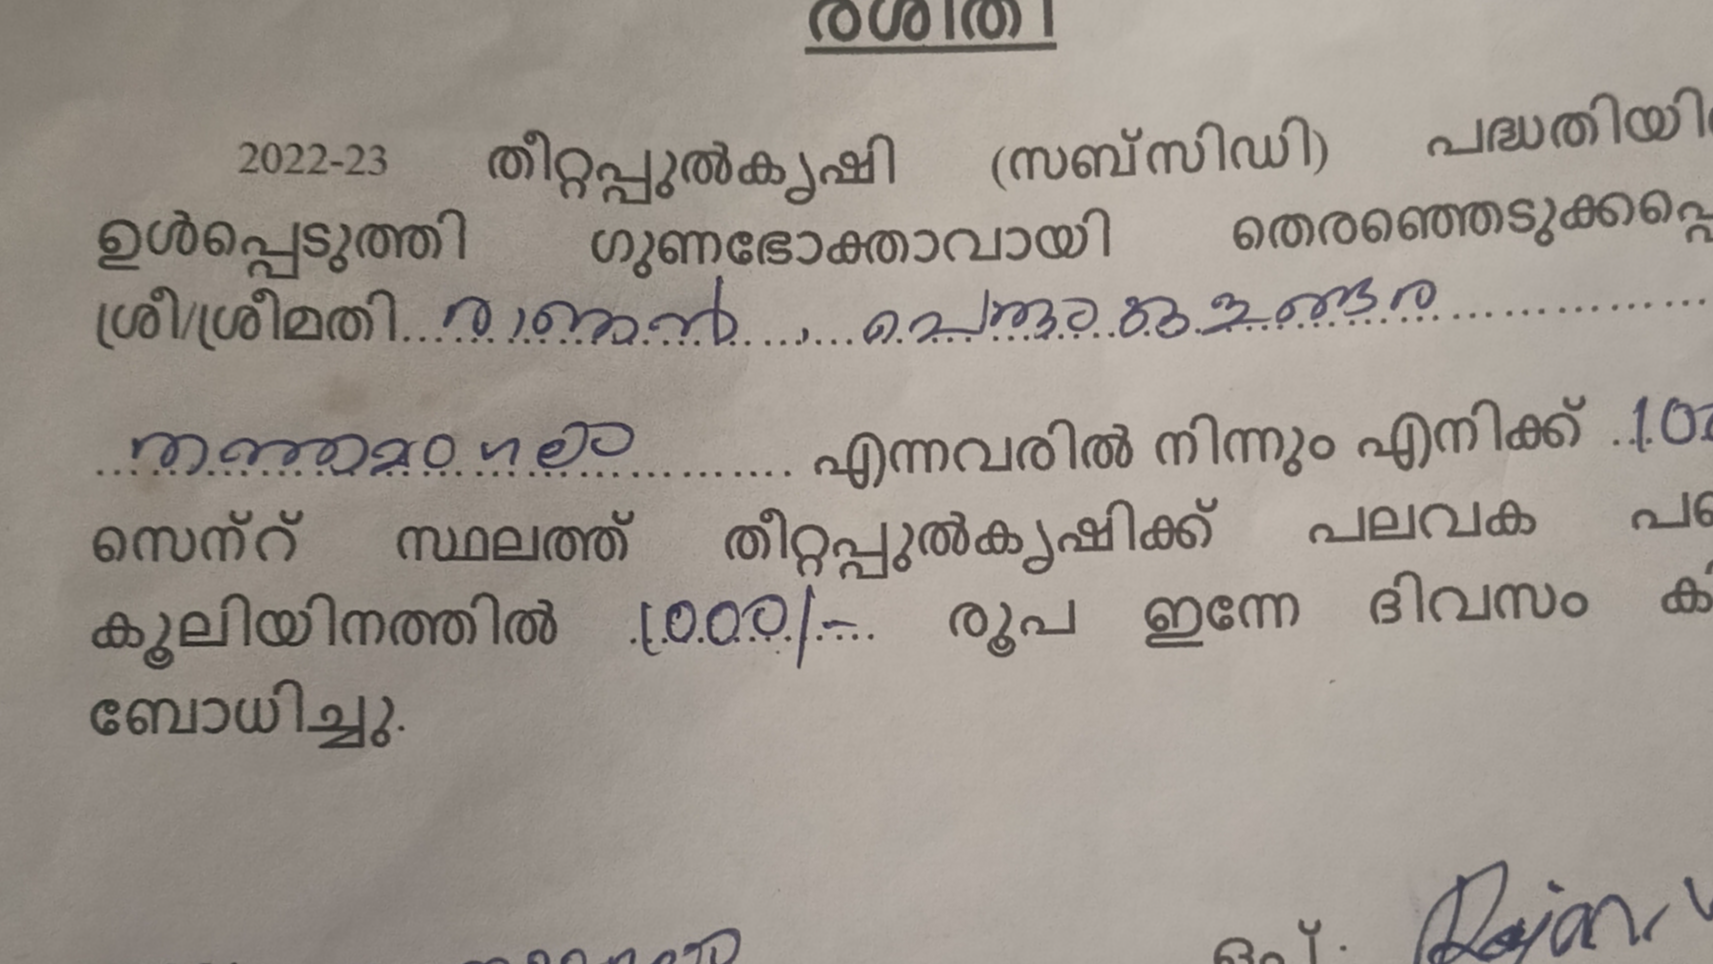 രശീതി
2022-23 തീറ്റപ്പുൽകൃഷി (സബ്സിഡി) പദ്ധതിയിൽ
ഉൾപ്പെടുത്തി ഗുണഭോക്താവായി തെരഞ്ഞെടുക്കപ്പെ
ശ്രീ/ശ്രീമതി രാജൻ,
തത്തമംഗലം എന്നവരിൽ നിന്നും എനിക്ക് 100
സെന്റ് സ്ഥലത്ത് തീറ്റപ്പുൽകൃഷിക്ക് പലവക
കൂലിയിനത്തിൽ 1000/- രൂപ ഇന്നേ ദിവസം
ബോധിച്ചു.
ഒപ്പ്. Rajan